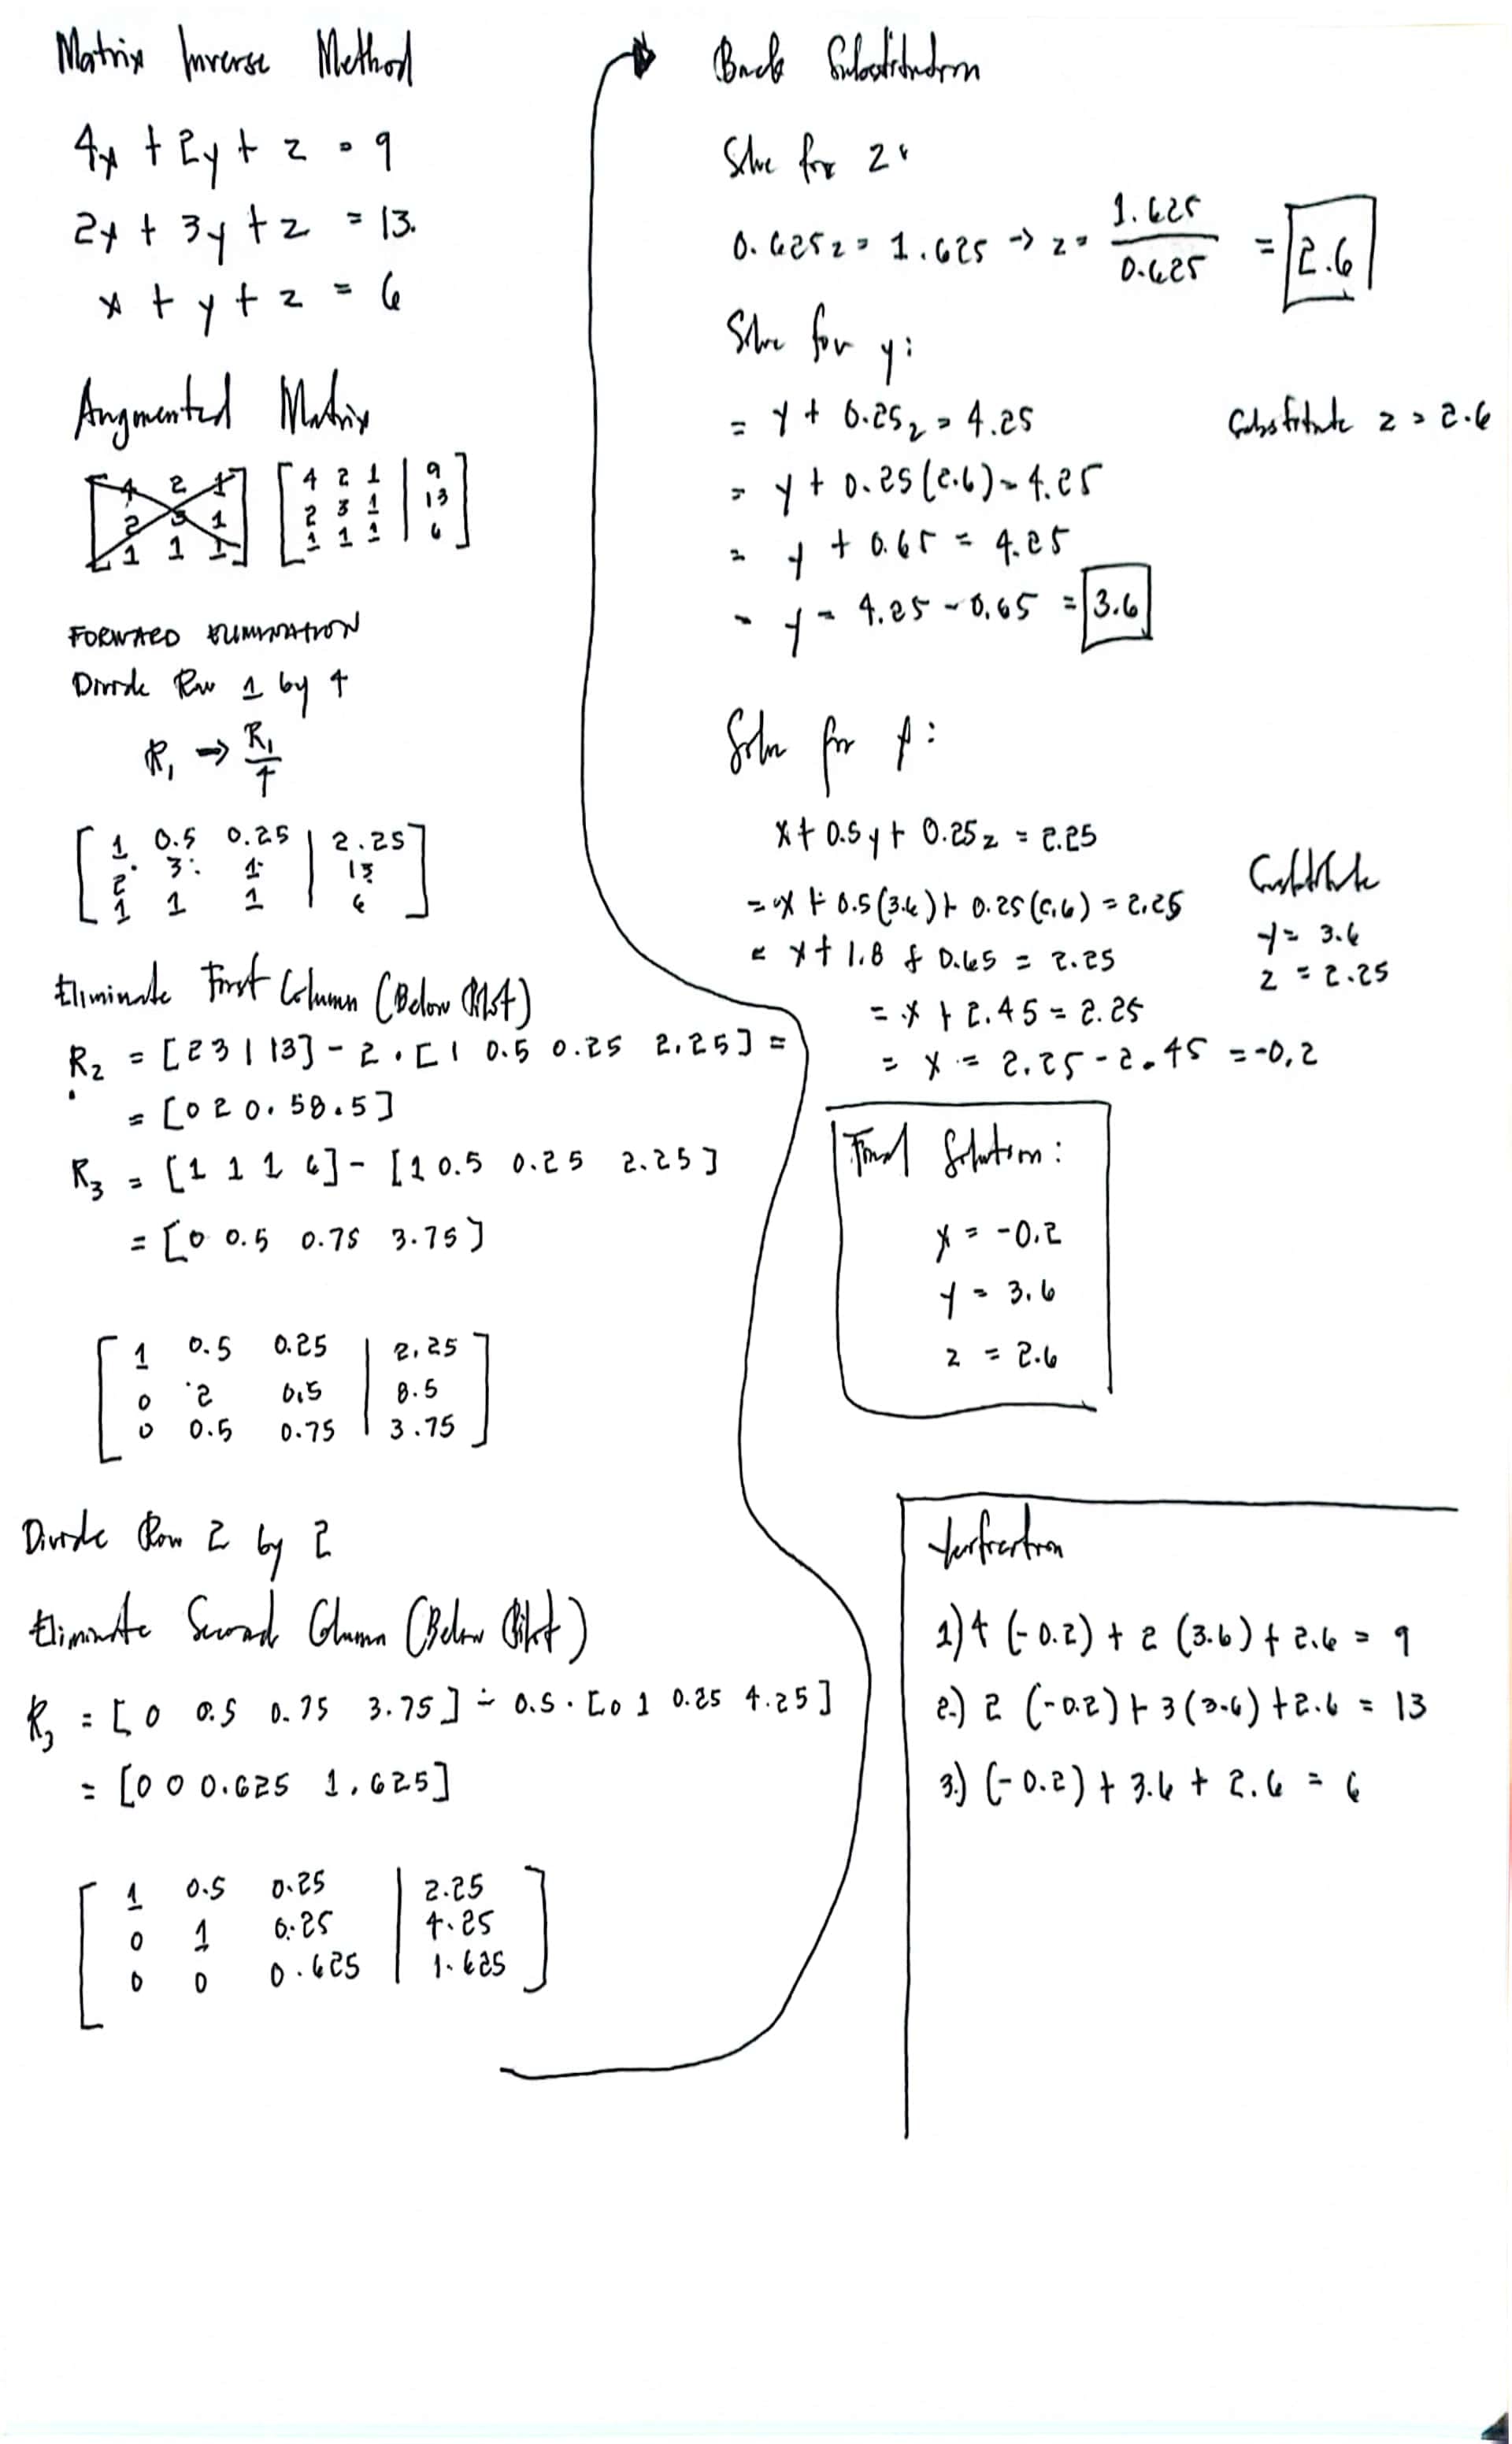 Matrix Inverse Method
4x + 2y + z = 9
2x + 3y + z = 13.
x + y + z = 6
Augmented Matrix
[4 2 1
2 3 1
1 1 1]
[4 2 1 | 9
2 3 1 | 13
1 1 1 | 6]
FORWARD ELIMINATION
Divide Row 1 by 4
R1 → R1/4
[1 0.5 0.25 | 2.25
2 3 1 | 13
1 1 1 | 6]
Eliminate First Column (Below
R2 = [2 3 1 13] - 2 · [1 0.5 0.25 2.25] =
= [0 2 0.5 8.5]
R3 = [1 1 1 6] - [1 0.5 0.25 2.25]
= [0 0.5 0.75 3.75]
[1 0.5 0.25 | 2.25
0 2 0.5 | 8.5
0 0.5 0.75 | 3.75]
Divide Row 2 by 2
Eliminate Second Column (Below
R3 = [0 0.5 0.75 3.75] - 0.5 · [0 1 0.25 4.25]
= [0 0 0.625 1.625]
[1 0.5 0.25 | 2.25
0 1 0.25 | 4.25
0 0 0.625 | 1.625]
Back Substitution
Solve for z:
0.625z = 1.625 → z = 1.625/0.625 = 2.6
Solve for y:
= y + 0.25z = 4.25 Substitute z = 2.6
= y + 0.25(2.6) = 4.25
= y + 0.65 = 4.25
= y = 4.25 - 0.65 = 3.6
Solve for x:
x + 0.5y + 0.25z = 2.25
= x + 0.5(3.6) + 0.25(2.6) = 2.25
= x + 1.8 + 0.65 = 2.25
= x + 2.45 = 2.25
= x = 2.25 - 2.45 = -0.2
Substitute
y = 3.6
z = 2.25
Final Solution:
x = -0.2
y = 3.6
z = 2.6
Verification
1) 4(-0.2) + 2(3.6) + 2.6 = 9
2.) 2(-0.2) + 3(3.6) + 2.6 = 13
3.) (-0.2) + 3.6 + 2.6 = 6